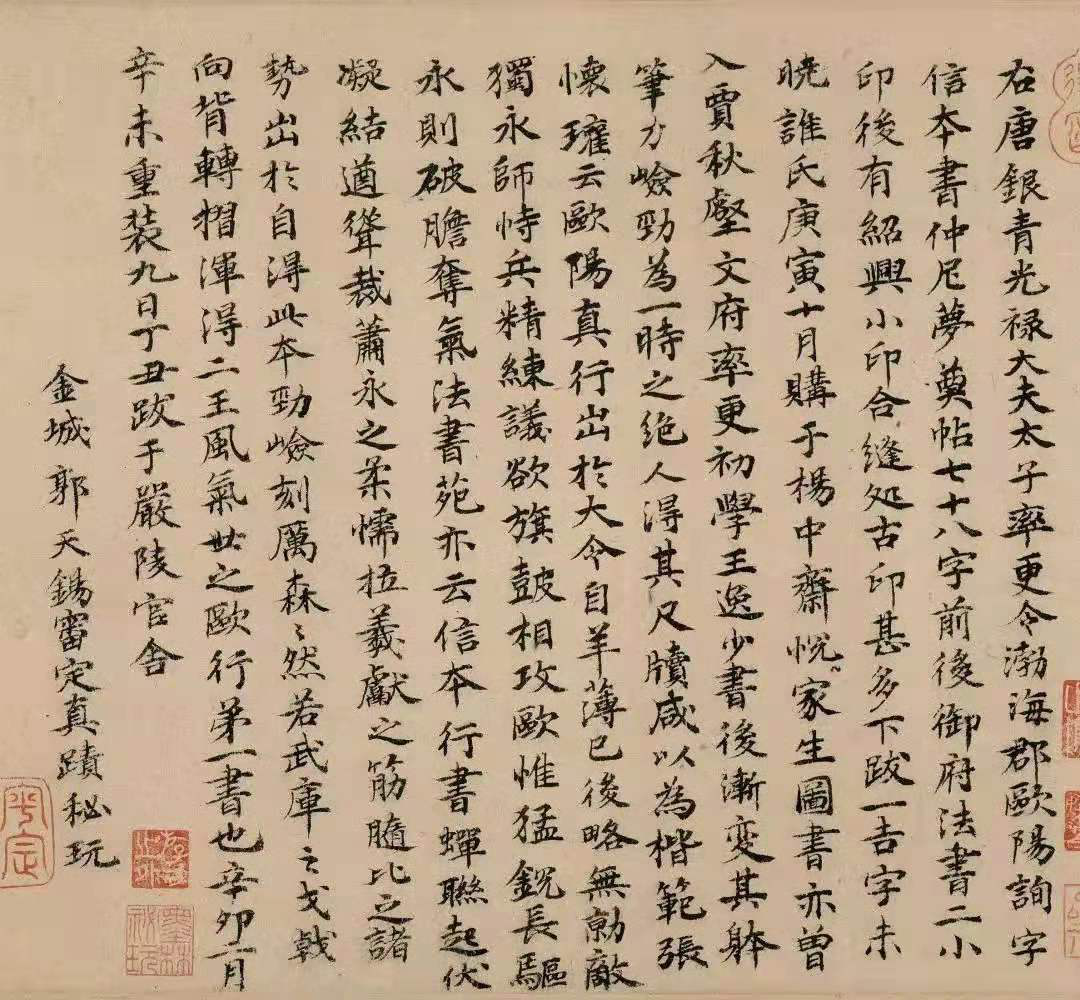 右唐銀青光禄大夫太子率更令渤海郡歐陽詢字
信本書仲尼夢奠帖七十八字前後御府法書二小
印後有紹興小印合縫処古印甚多下跋一吉字未
曉誰氏庚寅十月購于楊中齋悦家生圖書亦曾
入賈秋壑文府率更初學王逸少書後漸变其躰
筆力嶮勁為一時之绝人得其尺牘咸以為楷範張
懷瓘云歐陽真行出於大令自羊薄已後略無勍敵
獨永師恃兵精練議欲旗鼓相攻歐惟猛銳長驅
永則破膽奪氣法書苑亦云信本行書蟬聯起伏
凝結遒聳裁蕭永之柔懦拉羲獻之筋髓比之諸
勢出於自得此本勁嶮刻厲森〻然若武庫之戈戟
向背轉摺渾得二王風氣世之歐行第一書也辛卯二月
辛未重裝九日丁丑跋于嚴陵官舍
金城郭天錫審定真蹟秘玩
平定